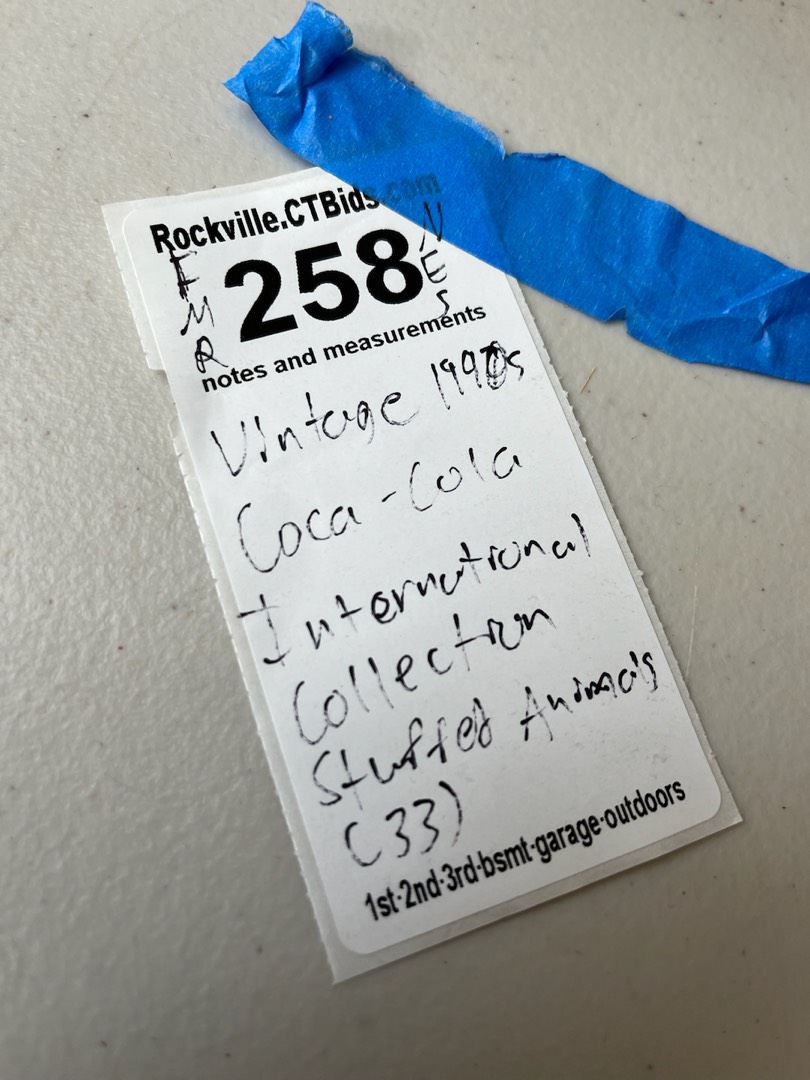 Rockville.CTBids.com
FMR
258
NES
notes and measurements
Vintage 1990s
Coca-Cola
International
Collection
Stuffed Animals
(33)
1st·2nd·3rd·bsmt·garage·outdoors